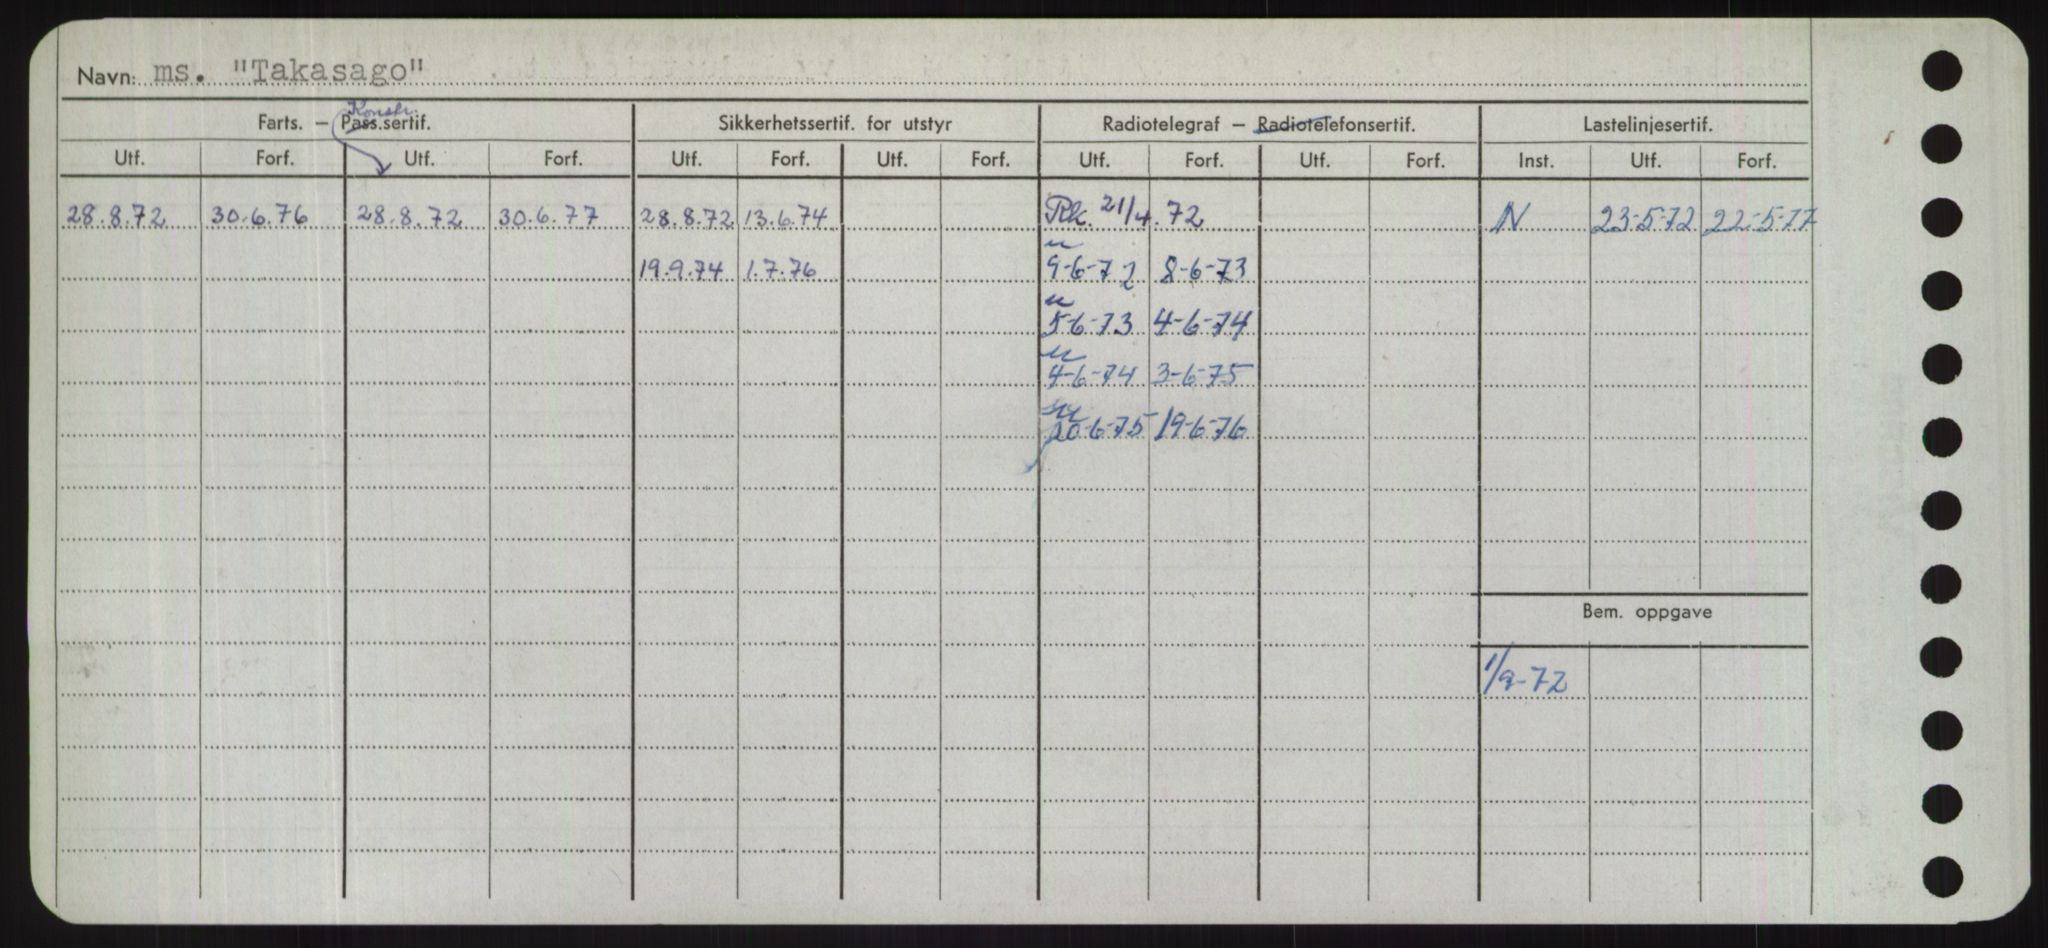 Navn: ms. "Takasago"
Konstr.
Farts. — Pass.sertif. Sikkerhetssertif. for utstyr Radiotelegraf — Radiotelefonsertif. Lastelinjesertif.
Utf. Forf. Utf. Forf. Utf. Forf. Utf. Forf. Utf. Forf. Utf. Forf. Inst. Utf. Forf.
28.8.72 30.6.76 28.8.72 30.6.77 28.8.72 13.6.74 Rk. 21/4.72 N 23-5-72 22-5-77
19.9.74 1.7.76 9-6-72 8-6-73
5-6-73 4-6-74
4-6-74 3-6-75
20-6-75 19-6-76
Bem. oppgave
1/9-72